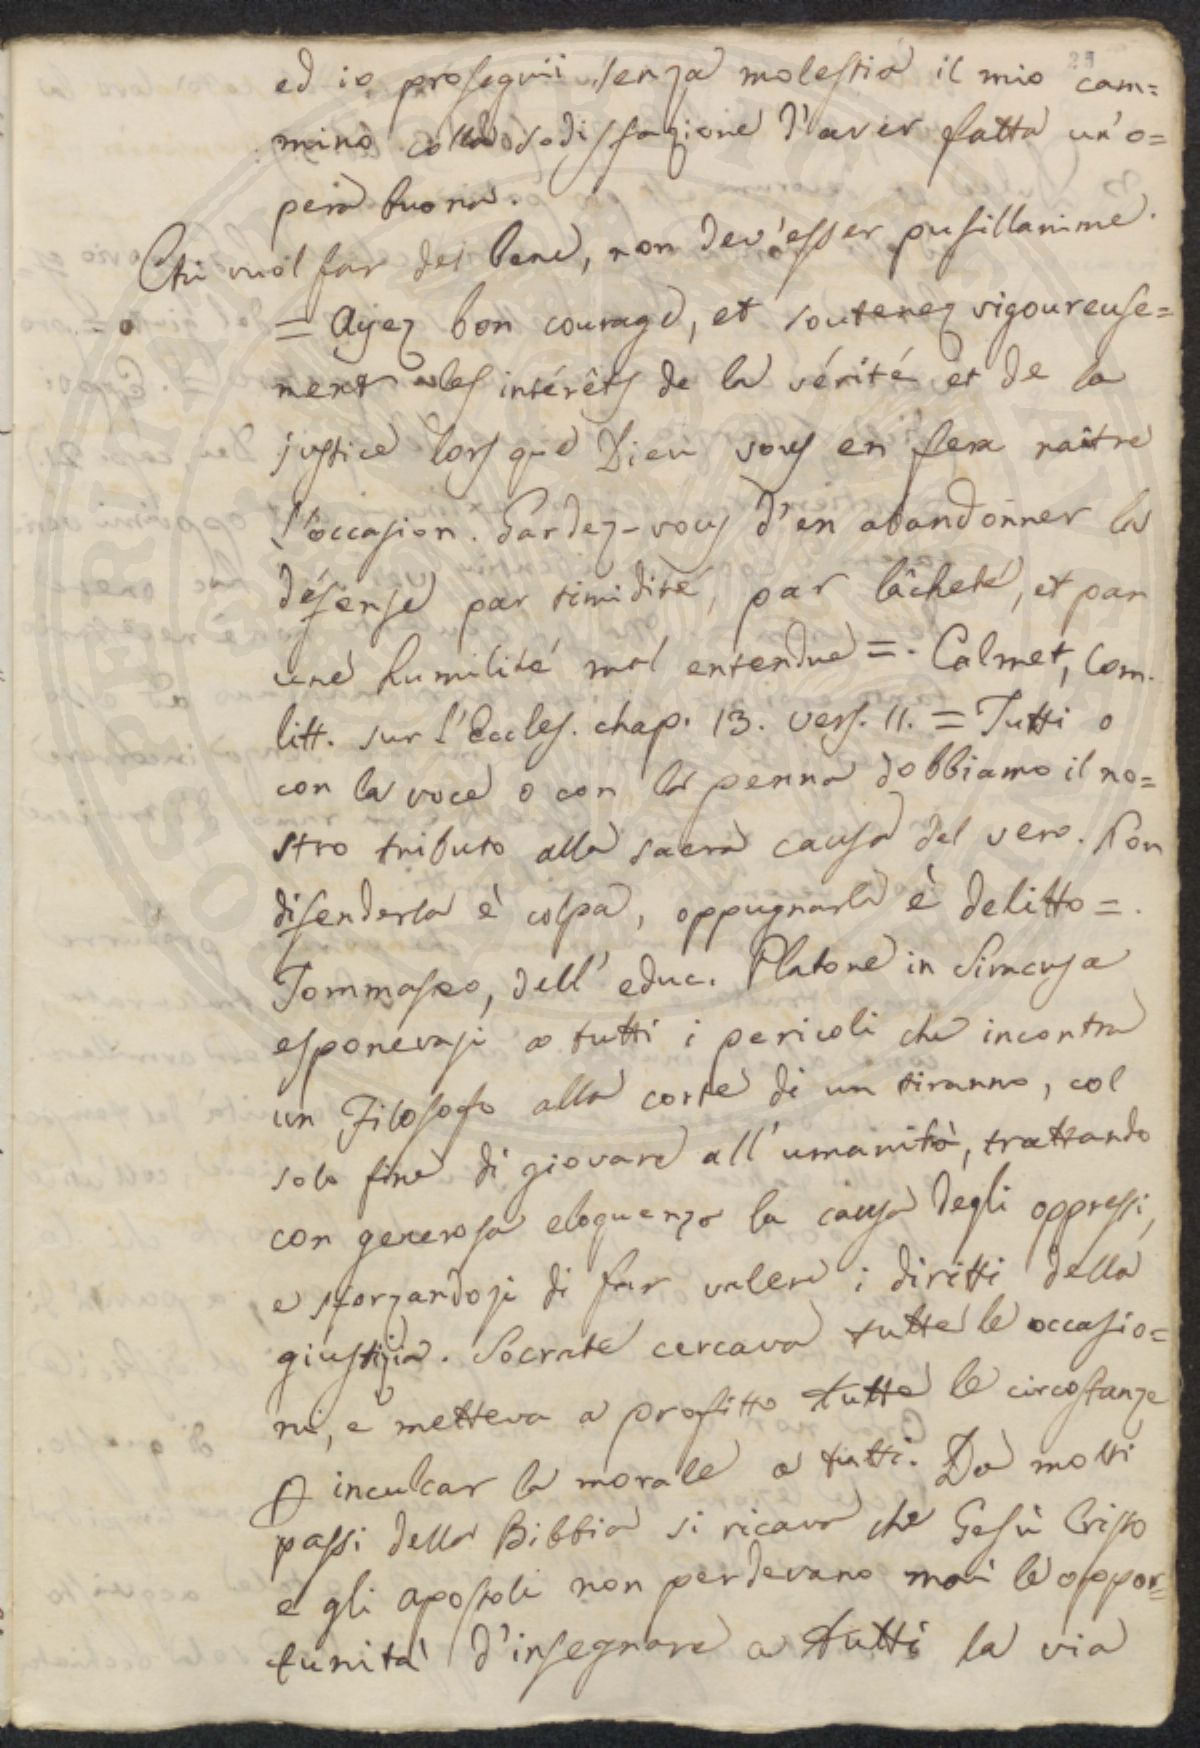 25
ed io proseguii senza molestia il mio cam=
mino colla sodisfazione d'aver fatta un'o=
pera buona.
Chi vuol far del bene, non dev'esser pusillanime.
= Ayez bon courage, et soutenez vigoureuse=
ment les intérêts de la vérité et de la
justice lorsque Dieu vous en fera naître
l'occasion. Gardez-vous d'en abandonner la
défense par timidité, par lâcheté, et par
une humilité mal entendue =. Calmet, Com.
litt. sur l'Eccles. chap. 13. vers. 11. = Tutti o
con la voce o con la penna dobbiamo il no=
stro tributo alla sacra causa del vero. Non
difenderla è colpa, oppugnarla è delitto =.
Tommaseo, dell'educ. Platone in Siracusa
esponevasi a tutti i pericoli che incontra
un Filosofo alla corte di un tiranno, col
solo fine di giovare all'umanità, trattando
con generosa eloquenza la causa degli oppressi,
e sforzandosi di far valere i diritti della
giustizia. Socrate cercava tutte le occasio=
ni, e metteva a profitto tutte le circostanze
inculcar la morale a tutti. Da molti
passi della Bibbia si ricava che Gesù Cristo
e gli apostoli non perdevano mai le oppor=
tunità d'insegnare a tutti la via